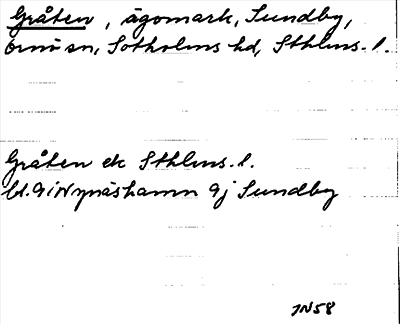 Gråten, ägomark, Sundby,
Ornö sn, Sotholms hd, Sthlms. l.
Gråten ek Sthlms. l.
bl. 9 i Nynäshamn 9j Sundby
JN58